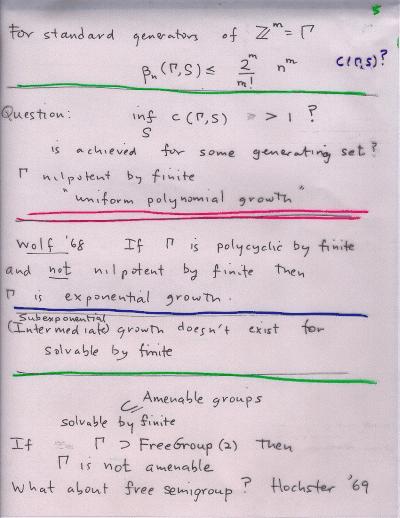 5
For standard generators of ℤ^m = Γ
β_n (Γ,S) ≤ 2^m/m! n^m C(Γ,S)?
Question: inf_S C(Γ,S) > 1 ?
is achieved for some generating set?
Γ nilpotent by finite
"uniform polynomial growth"
Wolf '68 If Γ is polycyclic by finite
and not nilpotent by finite then
Γ is exponential growth.
Subexponential
(Intermediate) growth doesn't exist for
solvable by finite
Amenable groups
solvable by finite
If Γ ⊃ FreeGroup(2) then
Γ is not amenable
What about free semigroup? Hochster '69